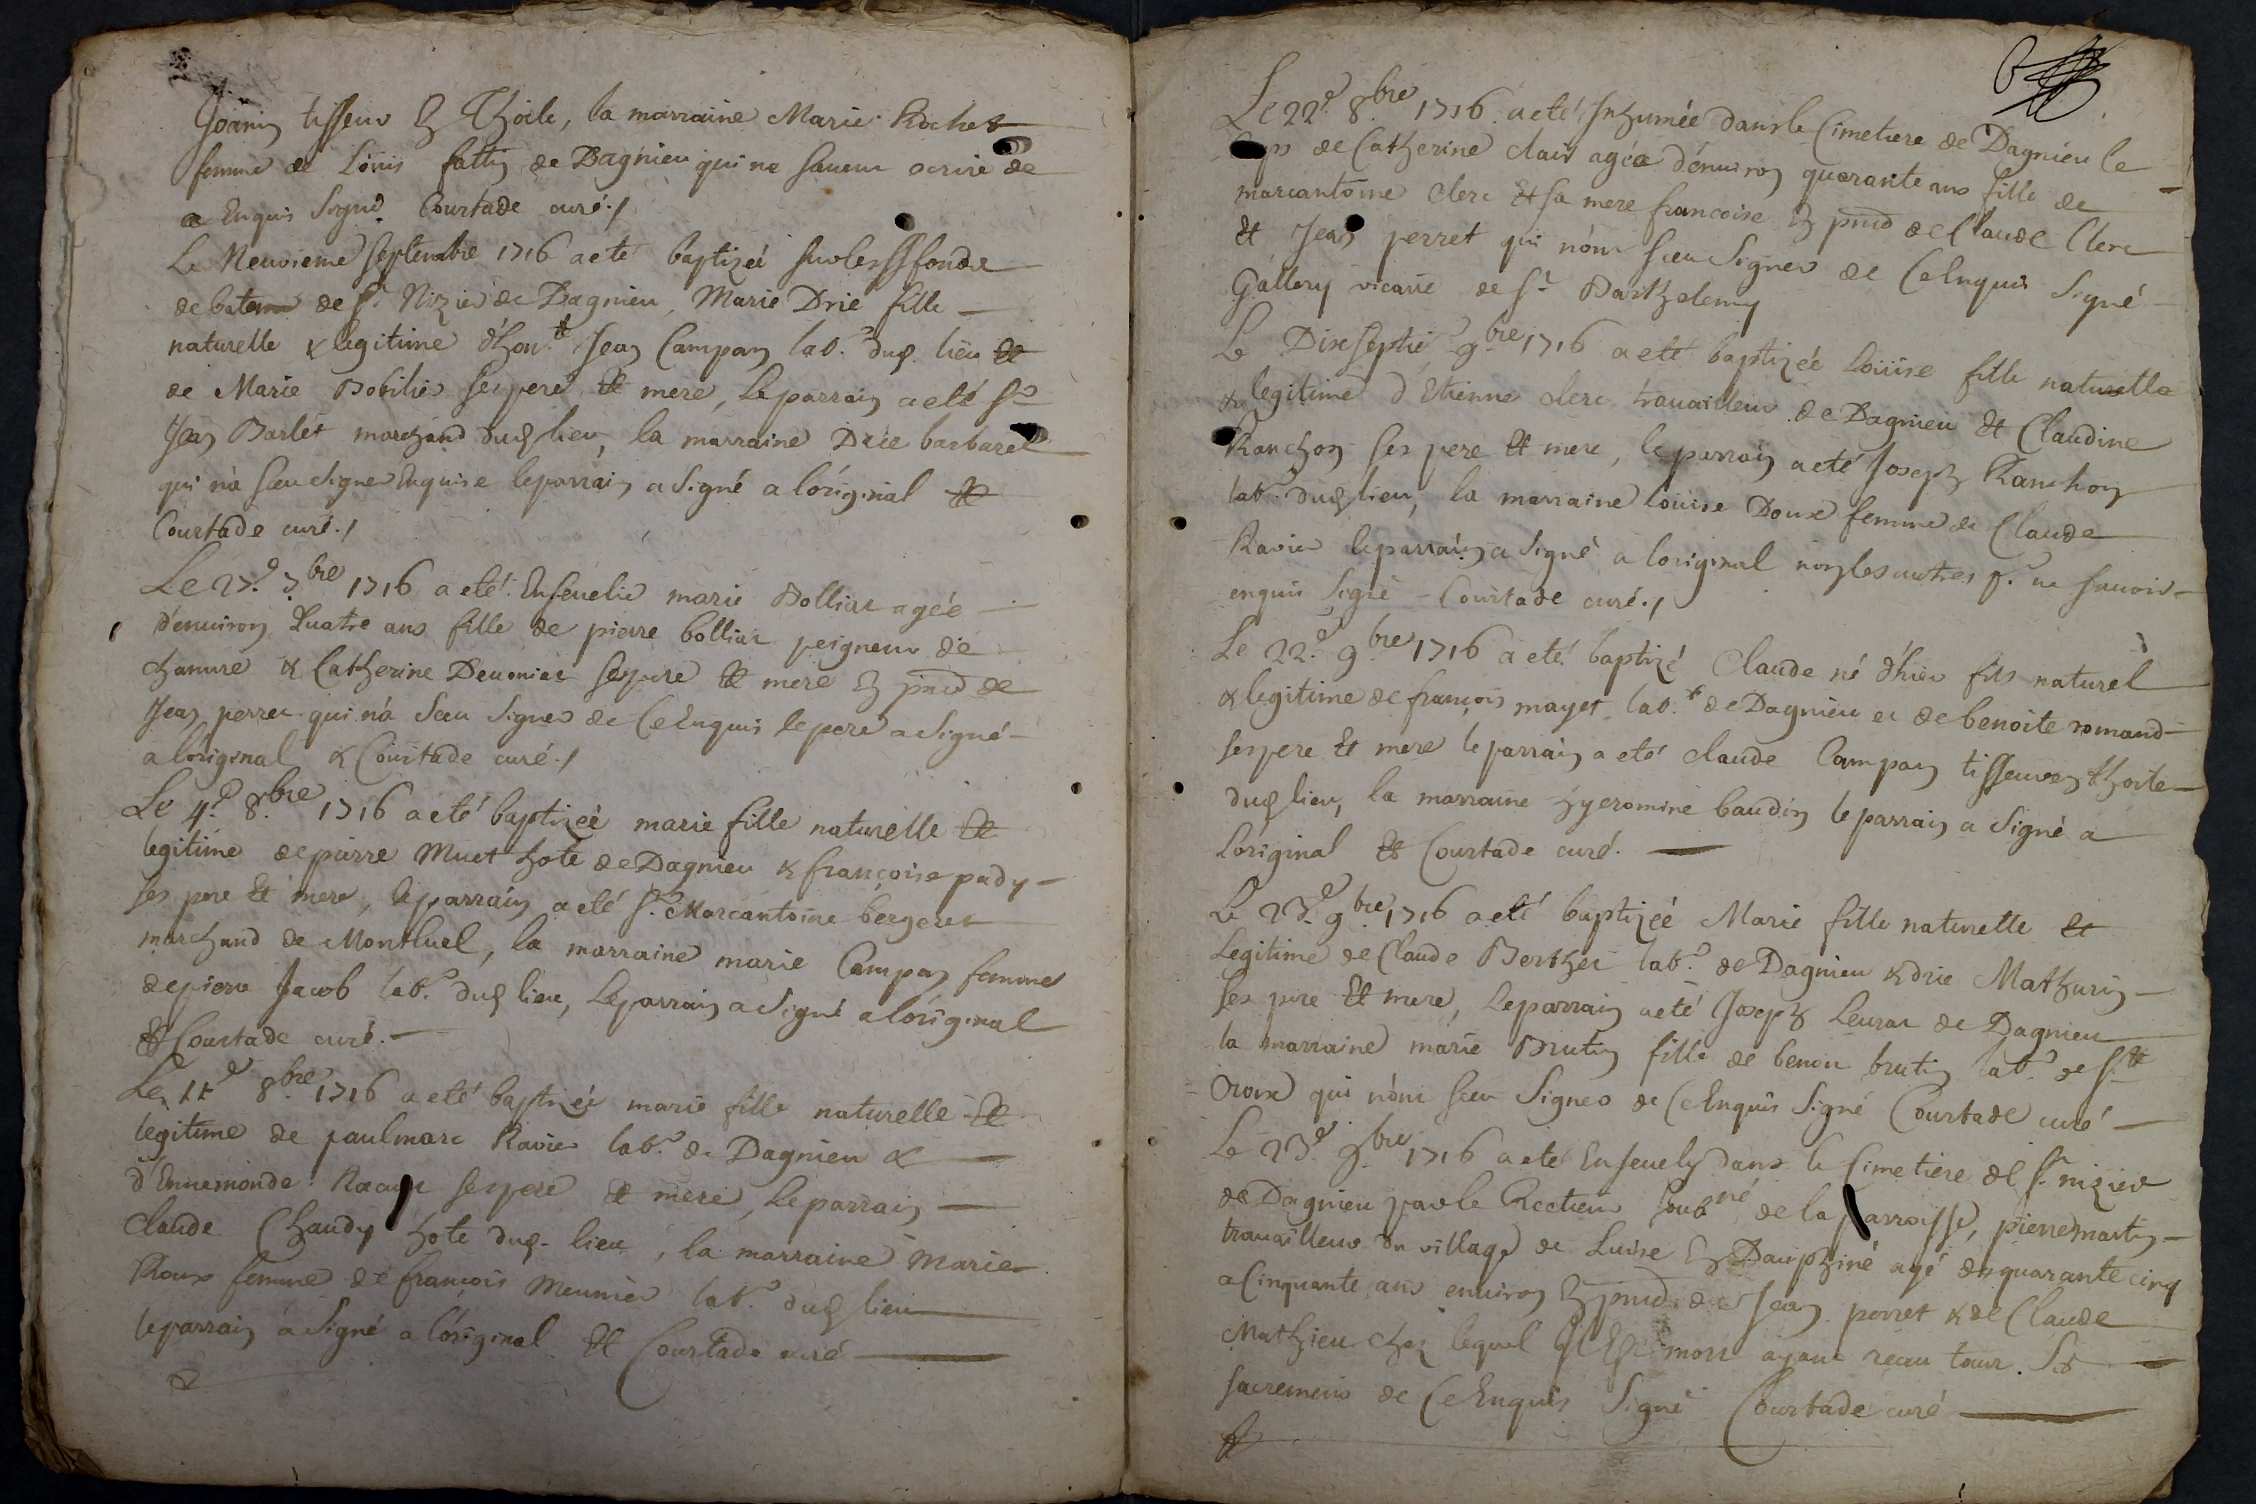 Joanin tisseur en thoile, la marraine Marie Rochet
femme de Loüis fattin de Dagnieu qui ne saveur ecrire de
ce Enquis Signé Courtade curé./
Le Neuvieme Septembre 1716 a eté baptizeé sur les ff fonds
de batem de st Nizier de Dagnieu, Marie Drie fille
naturelle & legitime d'hon.te Jean Campan lab.r dud. lieu et
de Marie Bobilier ses pere et mere, Le parrain a eté sr
Jean Barlet marchand dud lieu, la marraine Drie barbarel
qui n'a sceu signer Enquise le parrain a signé a l'original et
Courtade curé./
Le 27.e 7.bre 1716 a eté Ensevelie marie Bolliat agée
d'environ Quatre ans fille de pierre bolliat peigneur de
chanvre & Catherine ses pere et mere En pnce de
Jean perret qui n'a sceu signer de ce Enquis le pere a signé
a l'original & Courtade curé./
Le 4.e 8.bre 1716 a eté baptizeé marie fille naturelle et
legitime de pierre Muet hote de Dagnieu & françoise pady
ses pere et mere, le parrain a eté sr Marcantoine bergeret
marchand de Montluel, la marraine marie Campan femme
de pierre Jacob lab.r dud lieu, Le parrain a signé a l'original
et Courtade curé.
Le 11e 8.bre 1716 a eté baptizeé marie fille naturelle et
legitime de paulmarc Ravier lab.r de Dagnieu &
d'Ennemonde ses pere et mere, Le parrain
Claude Chaudy hote dud. lieu, la marraine Marie
Roux femme de françois Meunier lab.r dud lieu
le parrain a signé a l'original et Courtade curé
Le 22.e 8.bre 1716 a eté Inhumée dans le Cimetiere de Dagnieu le
Corps de Catherine clair agée d'environ quarante ans fille de
marcantoine clerc et sa mere francoise En pnce de Claude Clerc
et Jean perret qui n'ont sceu Signer de Ce Enquis Signé
Gallery vicaire de st Barthelemy
Le Dixseptie 9.bre 1716 a eté baptizée Loüise fille naturelle
& legitime d'Etienne clerc travailleur de Dagnieu et Claudine
Ranchon ses pere et mere, le parrain a eté Joseph Ranchon
lab.r dud lieu, la marraine loüise Doux femme de Claude
Ravier le parrain a signé a loriginal non les autres p.r ne savoir
enquis signé Courtade curé./
Le 22.e 9.bre 1716 a eté baptizé Claude né d'hier fils naturel
& legitime de françois mayet lab.r de Dagnieu et de benoite romand
ses pere et mere le parrain a eté claude Campan tisseur en thoile
dud lieu, la marraine hyeromine baudin le parrain a signé a
l'original et Courtade curé.
Le 23.e 9.bre 1716 a eté baptizeé Marie fille naturelle et
Legitime de Claude Berthet lab.r de Dagnieu & drie Mathurin
ses pere et mere, Le parrain a eté Joseph Leurat de Dagnieu
la marraine marie Brutin fille de benoit brutin lab.r de Ste
Croix qui n'ont sceu Signer de Ce Enquis Signé Courtade curé
Le 23.e 9.bre 1716 a eté Ensevely dans le Cimetiere de st nizier
de Dagnieu par le Recteur soubné de la parroisse, pierre martin
travailleur du village de Luise En Dauphiné agé de quarante cinq
a Cinquante ans environ En pnce de Jean perret & de Claude
Mathieu chez lequel il Est mort ayant receu tous. les
sacremens de Ce Enquis Signé Courtade curé